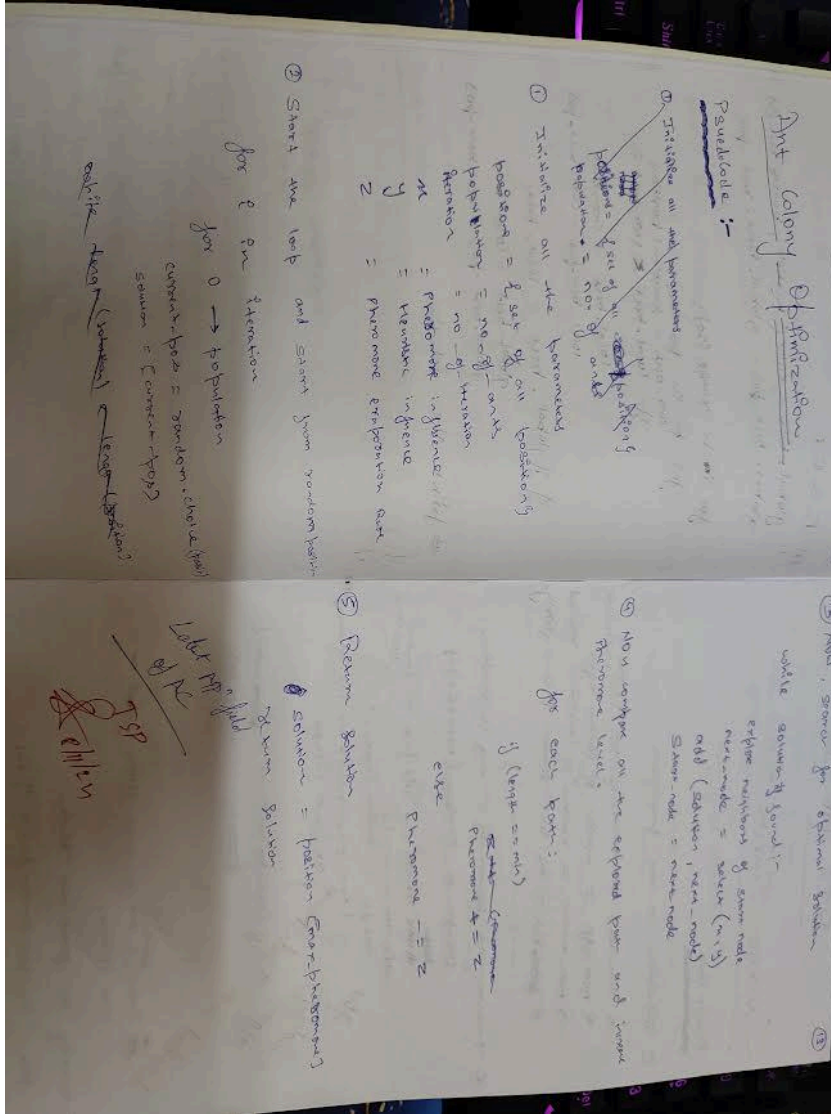 Ant Colony Optimization
PsuedoCode :-
① Initialize all the parameters
positions = { set of all position}
population = no. of ants
① Initialize all the parameters
positions = { set of all positions}
population = no-of-ants
iteration = no-of-iteration
x = Pheromone influence
y = Heuristic influence
z = Pheromone evaporation Rate
② Start the loop and start from random position
for i in iteration
for 0 → population
current-pos = random.choice(pos)
solution = [current-pos]
while length(solution) < length(position)
13
③ Now, search for optimal solution
while solution if found :-
explore neighbors of start node
next-node = select (x, y)
add (solution, next-node)
Start-node = next node
④ Now compare all the explored path and increase
Pheromone level.
for each path :
if (length == min)
Pheromone += z
else
Pheromone -= z
⑤ Return Solution
solution = position [max-pheromone]
return solution
Latest APP field
of AC
TSP